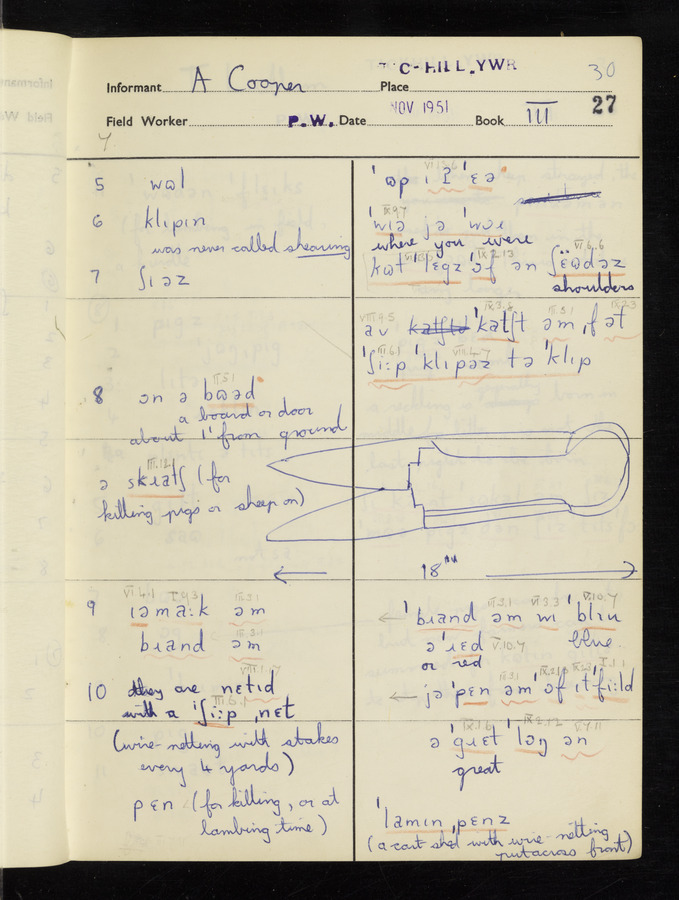 C-HILL, YWR
30
Informant A Cooper Place
NOV 1951
27
Field Worker P.W. Date Book III
Y.
5 wɷl
6 klɪpɪn
was never called shearing
7 ʃɪəz
8 ɔn ə bɷəd
III.5.1
a board or door
about 1' from ground
III.12
ə skɹatʃ (for
killing pigs or sheep on)
9 ɹəmaːk əm
bɹand əm
10 they are nɛtɪd
with a ˈʃiːp ˌnɛt
(wire-netting with stakes
every 4 yards)
pɛn (for killing, or at
lambing time)
ˈɷp ɪ ˈɛə
ˈwɪə jə ˈwɷɹ
where you were
kɷt ˈlɛgz ˈɔf ən ʃɛ̈ɷdəz
VI.6.6
shoulders
VIII.4.5
av ˈkatʃt əm ˌfət
ˈʃiːp ˈklɪpəz tə ˈklɪp
18"
← ˈbɹand əm wɪ ˈblɪu
V.10.7
ə ˈɹɛd blue
V.10.7
or red
← jə ˈpɛn əm ˈɔf ɪt ˈfiːld
ə ˈgɹɛt ˈlɔŋ ən
great
ˈlamɪn ˌpɛnz
(a cart shed with wire-netting
put across front)